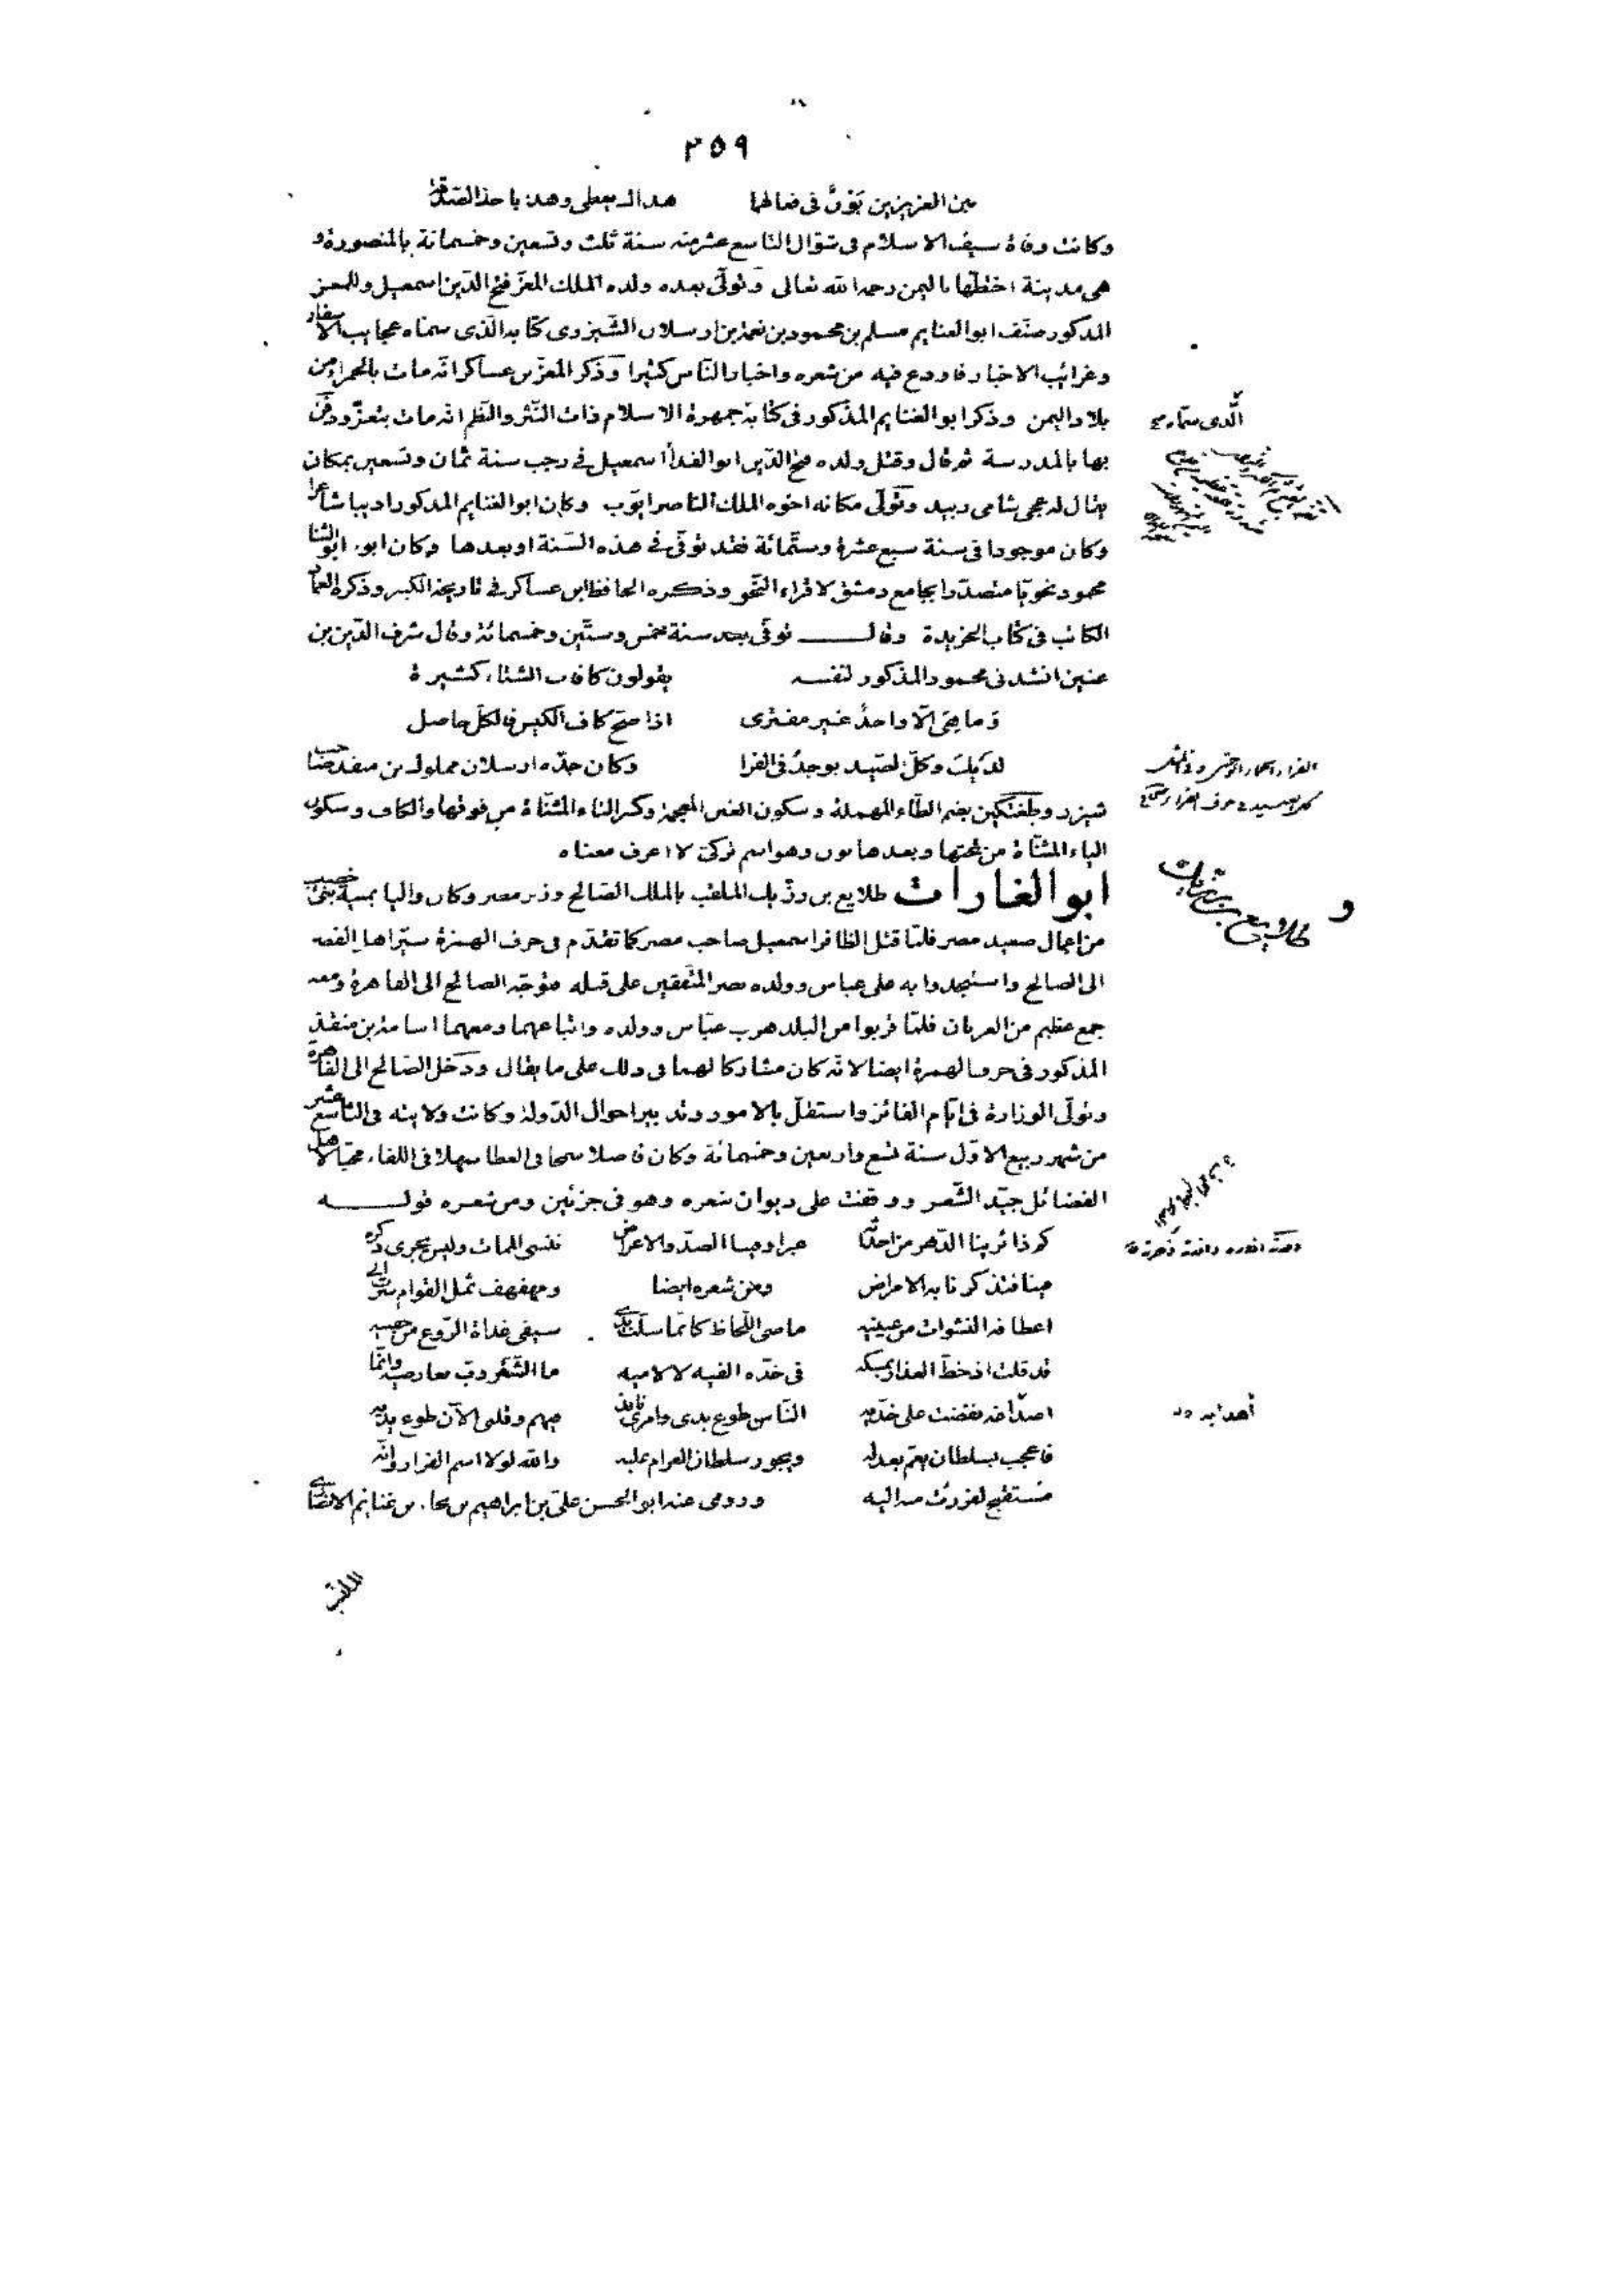 ٣٥٩
بين العزيزين بون فى فعالهما هذاك يعطى وهذا ياخذ الصدقة
وكانت وفاة سيف الاسلام فى شوال التاسع عشر منه سنة ثلث وتسعين وخمسمائة بالمنصورة و
هى مدينة اختطها باليمن رحمه الله تعالى وتولى بعده ولده الملك المعز فتح الدين اسمعيل وللمعز
المذكور صنف ابو الغنايم مسلم بن محمود بن نعمة بن ارسلان الشيزرى كتابه الذى سماه عجايب الاسفار
وغرائب الاخبار فاودع فيه من شعره واخبار الناس كثيرا وذكر المعز بن عساكر انه مات بالحمراء من
بلاد اليمن وذكر ابو الغنايم المذكور فى كتابة جمهرة الاسلام ذات النثر والنظم انه مات بتعز ودفن
بها بالمدرسة ثم قال وقتل ولده فتح الدين ابو الفدا اسمعيل فى رجب سنة ثمان وتسعين بمكان
يقال له عجى شامى زبيد وتولى مكانه اخوه الملك الناصر ايوب وكان ابو الغنايم المذكور اديبا شاعرا
وكان موجودا فى سنة سبع عشرة وستمائة فقد توفى فى هذه السنة او بعدها وكان ابوه ابو الثنا
محمود نحويا متصدرا بجامع دمشق لاقراء النحو وذكره الحافظ ابن عساكر فى تاريخه الكبير وذكره العماد
الكاتب فى كتاب الخريدة وقال توفى بعد سنة خمس وستين وخمسمائة وقال شرف الدين بن
عنين انشدنى محمود المذكور لنفسه يقولون كافات الشتاء كثيرة
وما هى الا واحد غير مفترى اذا صح كاف الكيس فالكل حاصل
لديك وكل الصيد يوجد فى الفرا وكان جده ارسلان مملوك بن منقذ صاحب
شيزر وطغتكين بضم الطاء المهملة وسكون الغين المعجمة وكسر التاء المثناة من فوقها والكاف وسكون
الياء المثناة من تحتها وبعدها نون وهو اسم تركى لا اعرف معناه
ابو الغارات طلايع بن رزيك الملقب بالملك الصالح وزير مصر وكان واليا بمنية بنى خصيب
من اعمال صعيد مصر فلما قتل الظافر اسمعيل صاحب مصر كما تقدم فى حرف الهمزة سير اهل القصر
الى الصالح واستنجدوا به على عباس وولده نصر المتفقين على قتله فتوجه الصالح الى القاهرة ومعه
جمع عظيم من العربان فلما قربوا من البلد هرب عباس وولده واتباعهما ومعهما اسامة بن منقذ
المذكور فى حرف الهمزة ايضا لانه كان مشاركا لهما فى ذلك على ما يقال ودخل الصالح الى القاهرة
وتولى الوزارة فى ايام الفائز واستقل بالامور وتدبير احوال الدولة وكانت ولايته فى التاسع عشر
من شهر ربيع الاول سنة تسع واربعين وخمسمائة وكان فاضلا سمحا فى العطا سهلا فى اللقاء محبا لاهل
الفضائل جيد الشعر ووقفت على ديوان شعره وهو فى جزئين ومن شعره قوله
كم ذا يرينا الدهر من احداثه عبرا وفينا الصد والاعراض ننسى الممات وليس يجرى ذكره
فينا فتذكرنا به الامراض ومن شعره ايضا ومهفهف ثمل القوام سرت الى
اعطافه النشوات من عينيه ماضى اللحاظ كانما سلت يدى سيفى غداة الروع من جفنيه
قد قلت اذ خط العذار بمسكه فى خده الفيه لا لاميه ما الشعر دب بعارضيه وانما
اصداغه نفضت على خديه الناس طوع يدى وامرى نافذ فيهم وقلبى الآن طوع يديه
فاعجب بسلطان يعم بعدله ويجور سلطان الغرام عليه والله لولا اسم الفرار وانه
مستقبح لفررت منه اليه وروى عنه ابو الحسن على بن ابراهيم بن نجا بن غنايم الانصارى
الذى سماه
طلايع بن رزيك